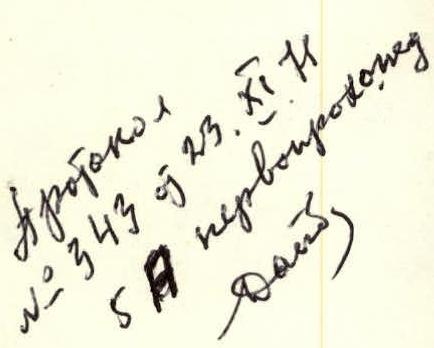 Протокол
№ 343 от 23.XI.71
5 Я первопрохожд